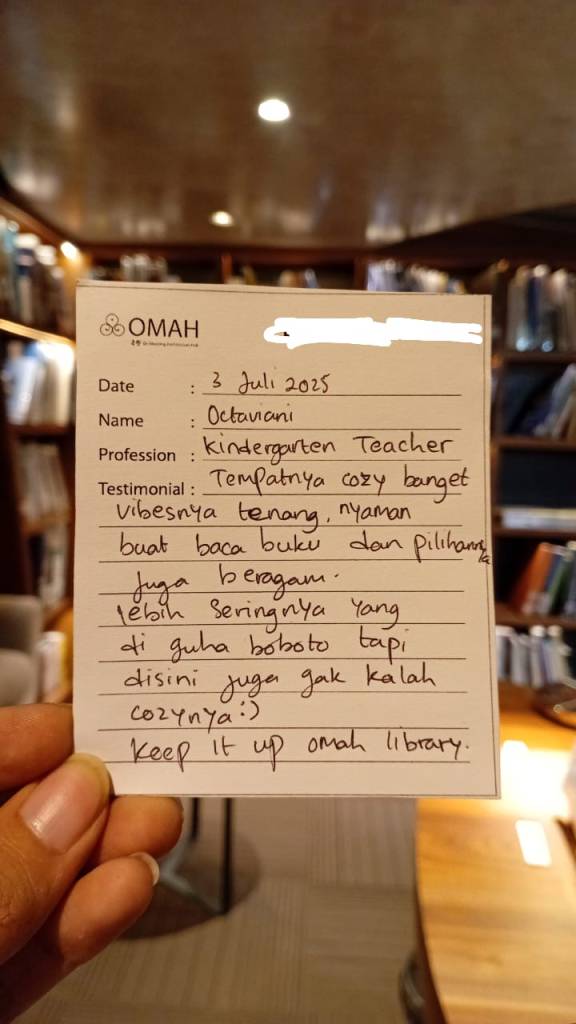 OMAH
Date : 3 Juli 2025
Name : Octaviani
Profession : Kindergarten Teacher
Testimonial : Tempatnya cozy banget
vibesnya tenang, nyaman
buat baca buku dan pilihannya
juga beragam.
lebih seringnya yang
di guha boboto tapi
disini juga gak kalah
cozynya :)
keep it up omah library.